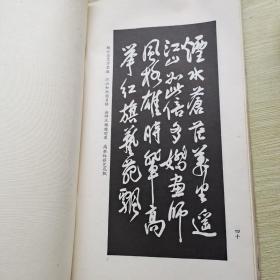 煙水蒼茫萬里遙
江山如此信多嬌畫師
風格雄時輩高
舉紅旗藝苑飄
四十